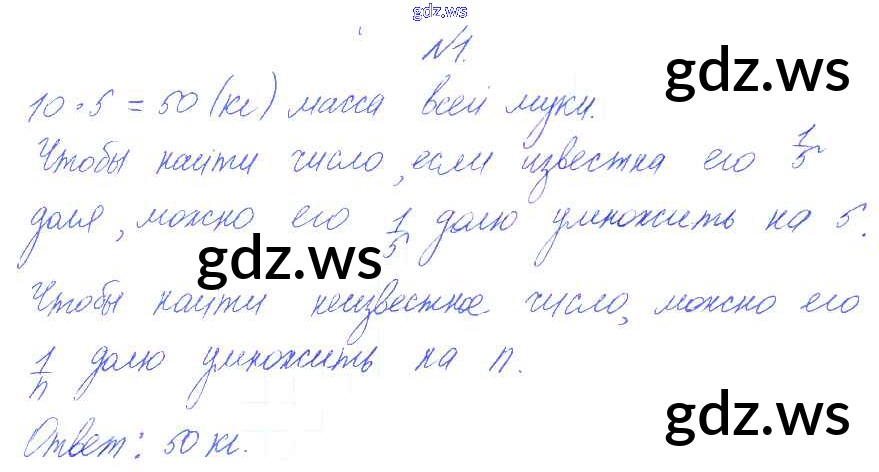 gdz.ws
№1.
gdz.ws
10·5 = 50 (кг) масса всей муки.
Чтобы найти число, если известна его 1/5
доля, можно его 1/5 долю умножить на 5.
gdz.ws
Чтобы найти неизвестное число, можно его
1/n долю умножить на n.
gdz.ws
Ответ: 50 кг.